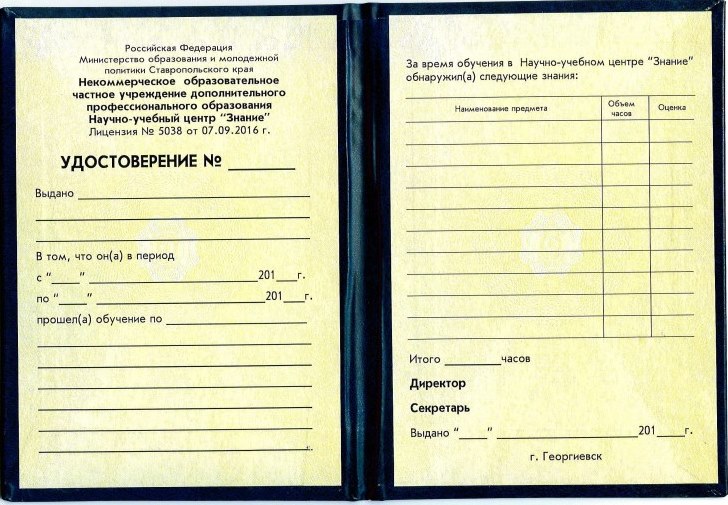 Российская Федерация
Министерство образования и молодежной
политики Ставропольского края
Некоммерческое образовательное
частное учреждение дополнительного
профессионального образования
Научно-учебный центр "Знание"
Лицензия № 5038 от 07.09.2016 г.
УДОСТОВЕРЕНИЕ № ______
Выдано ______
В том, что он(а) в период
с "____" ______ 201___г.
по "____" ______ 201___г.
прошел(а) обучение по ______
г.
За время обучения в Научно-учебном центре "Знание"
обнаружил(а) следующие знания:
Наименование предмета Объем часов Оценка
Итого ______ часов
Директор
Секретарь
Выдано "____" ______ 201____г.
г. Георгиевск